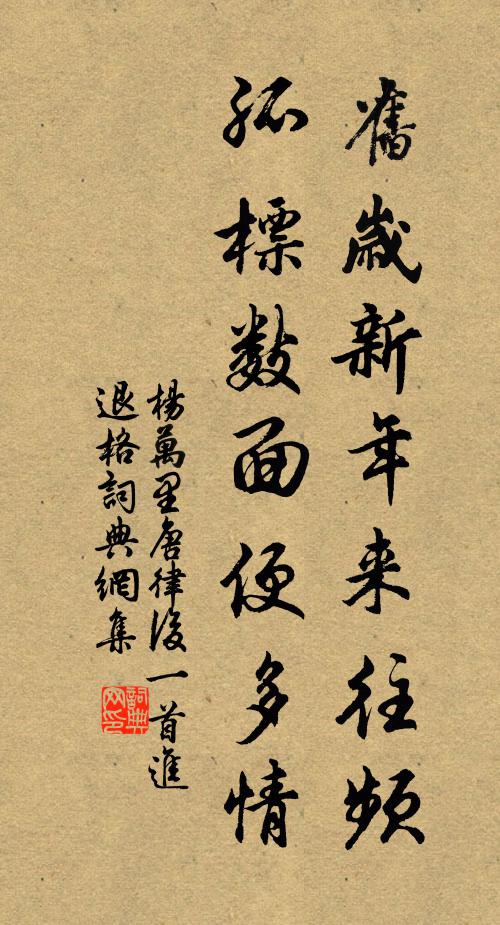 舊歲新年来往頻
孤標数面便多情
楊萬里唐律後一首進
退格詞典網集
詞典网印